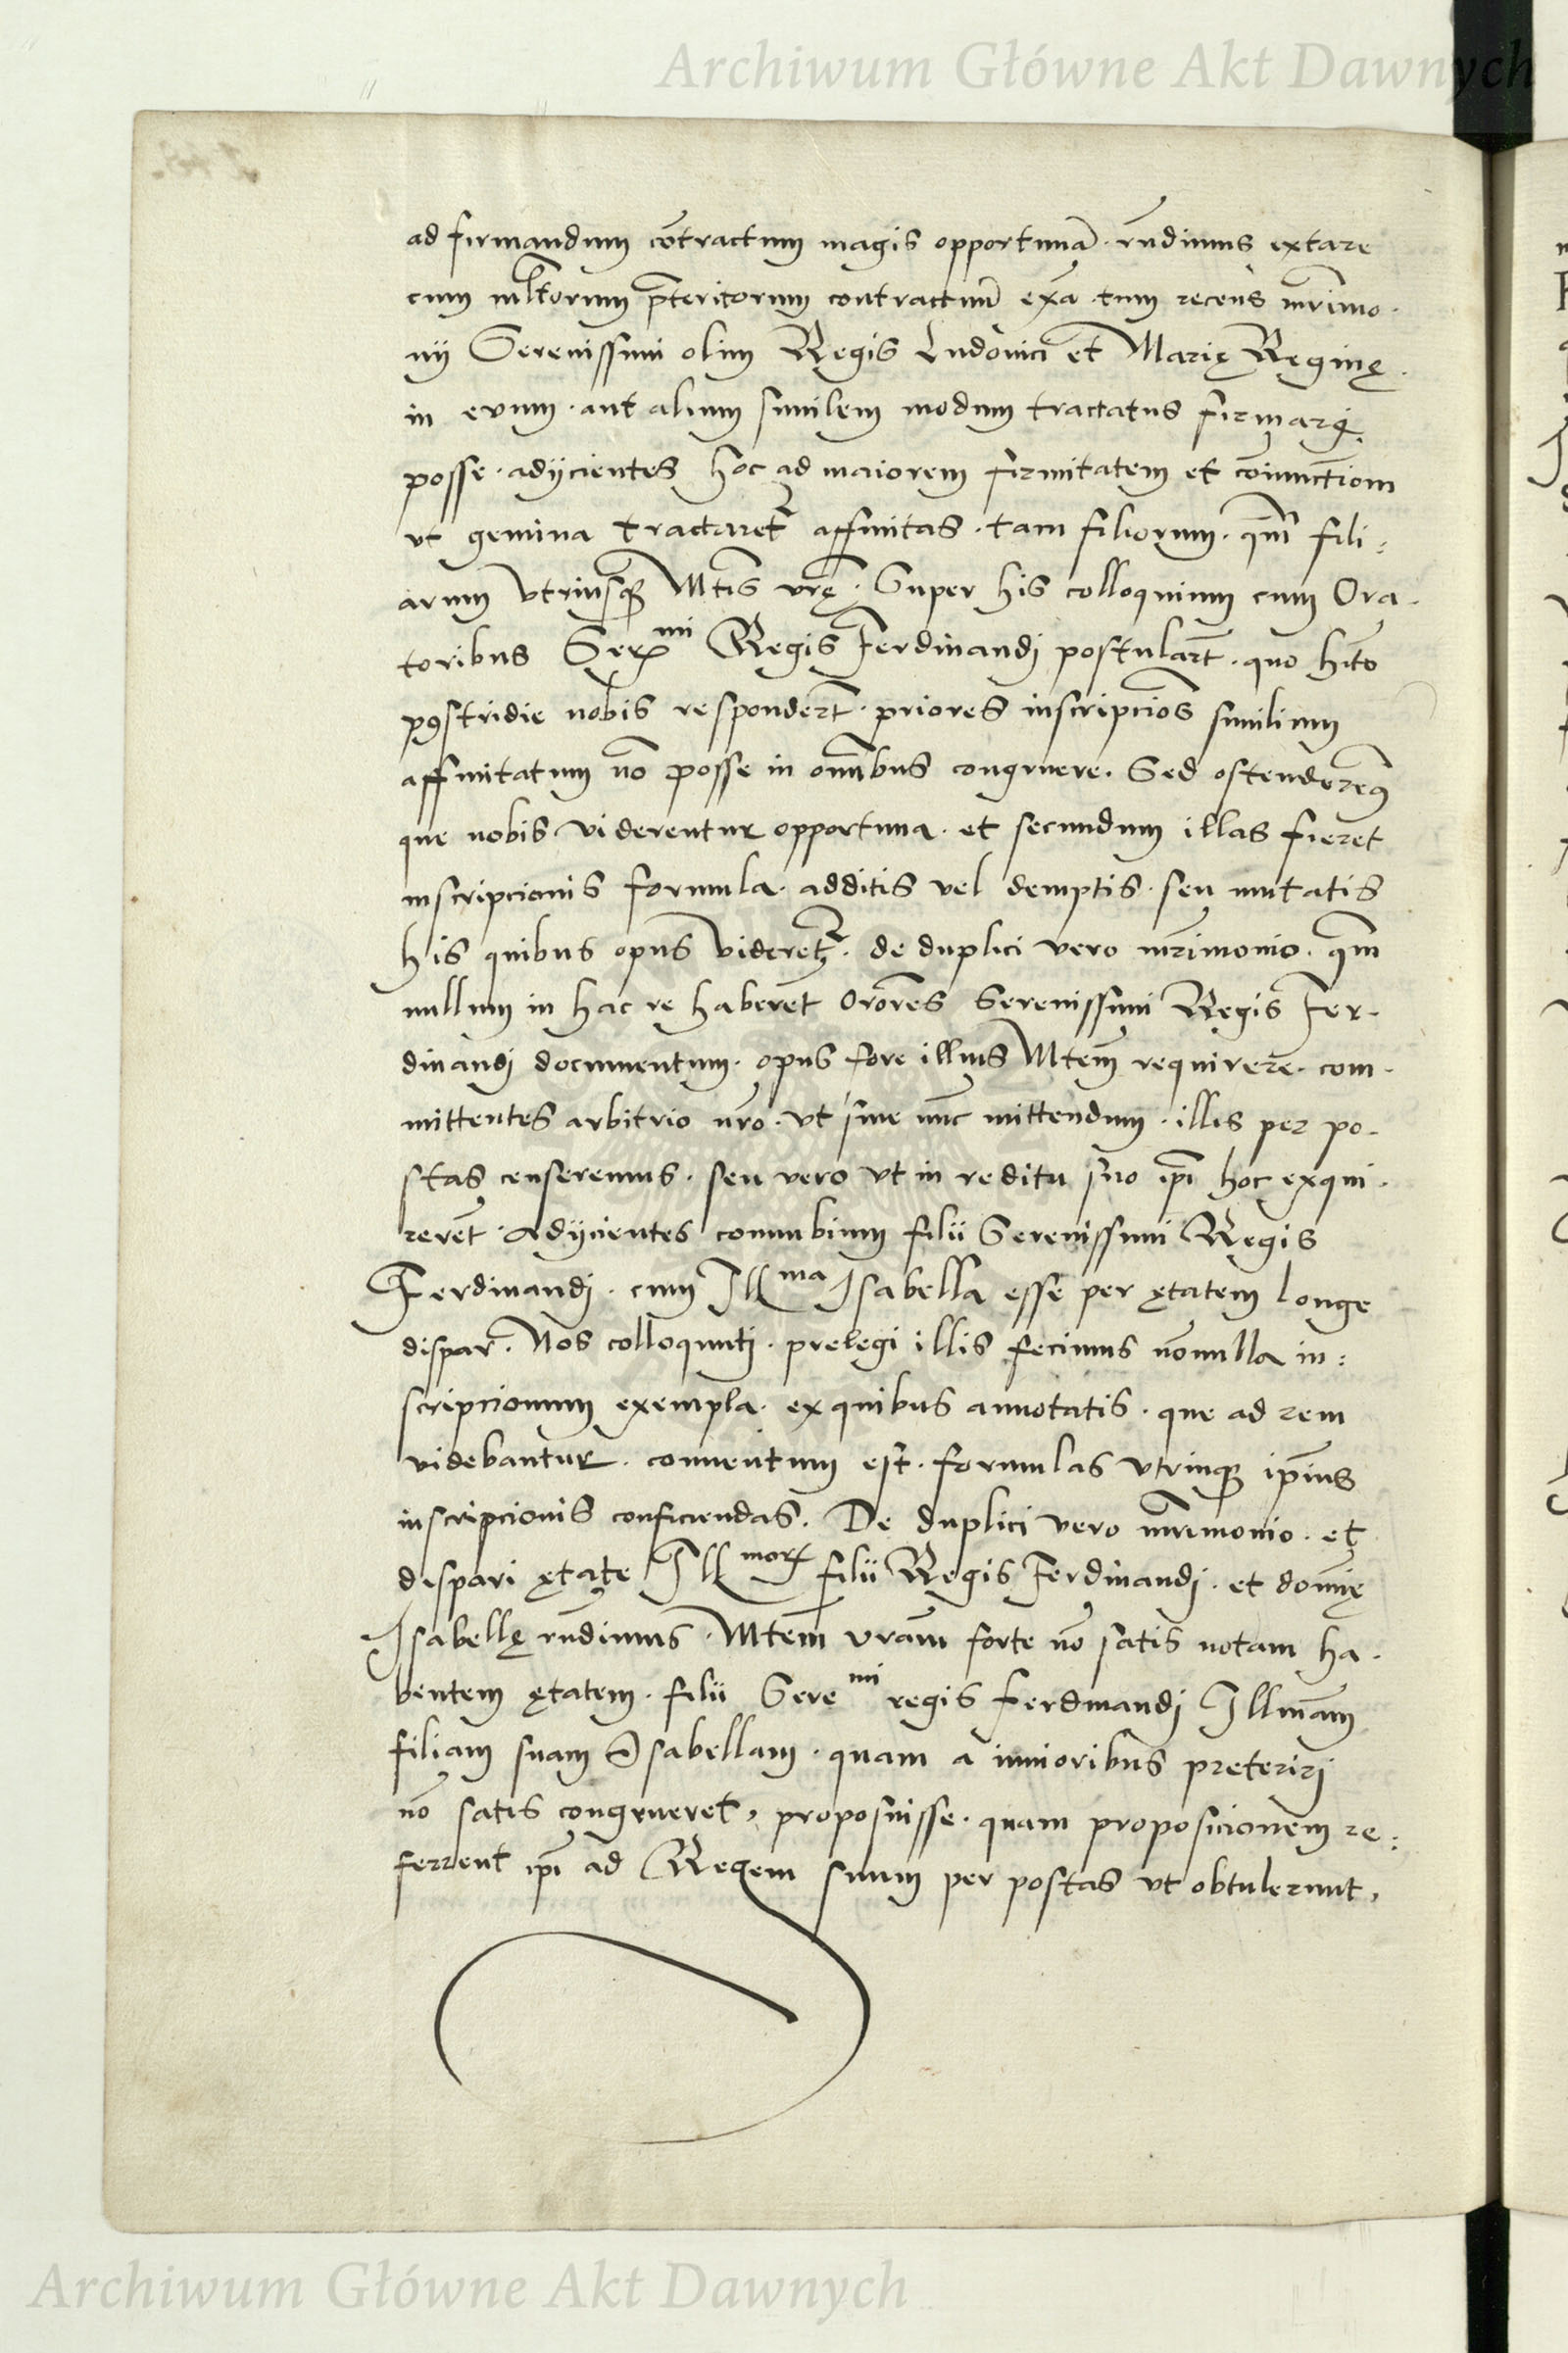 Archiwum Główne Akt Dawnych
ad firmandum cõtractum magis opportunã. rñdimus extare
cum mltorum p̃teritorum contractuũ exã. tum recens mr̃imo.
nij Serenissimi olim Regis Ludovici et Marię Reginę.
in eum. aut alium similem modum tractatus firmari
posse. adijcientes hoc ad maiorem firmitatem et cõiunctiom
ut gemina tractaret᷑ affinitas. tam filiorum. qm̃ fili:
arum utriusq̃ Mtis vrę̃. Super his colloquium cum Ora.
toribus Ser^mi Regis Ferdinandj postular̃t. quo hĩto
p9stridie nobis responder̃t. priores inscripciões similium
affinitatum nõ posse in om̃ibus congruere. Sed ostenderem9
que nobis viderentur opportuna. et secundum illas fieret
inscripcionis formula. additis vel demptis. seu mutatis
his quibus opus videret᷑. de duplici vero mr̃imonio. qm̃
nullum in hac re haberẽt Orõres Serenissimi Regis Fer-
dinandj documentum. opus fore illius Mtem̃ requirere. com-
mittentes arbitrio nr̃o. ut siue nũc mittendum. illis per po-
stas censeremus. seu vero ut in reditu suo ip̃i hoc exqui-
rerẽt. Adijcientes connubium filii Serenissimi Regis
Ferdinandj. cum Ill^ma Isabella esse per ętatem longe
dispar. Nos colloquutj. prelegi illis fecimus nõnulla in:
scripcionum exempla. ex quibus annotatis. que ad rem
videbantur. conuentum est. formulas utrinq̃ ip̃ius
inscripcionis conficiendas. De duplici vero mr̃imonio. et
dispari ętate Ill^morꝝ filii Regis Ferdinandj. et dom̃ię
Isabellę rñdimus. Mtem̃ vrãm forte nõ satis notam ha-
bentem ętatem. filii Sere^mi regis Ferdinandj Illmãm
filiam suam Isabellam. quam a iunioribus preterirj
nõ satis congrueret, proposuisse. quam proposicionem re:
ferrent ip̃i ad Regem suum per postas ut obtulerunt,
Archiwum Główne Akt Dawnych